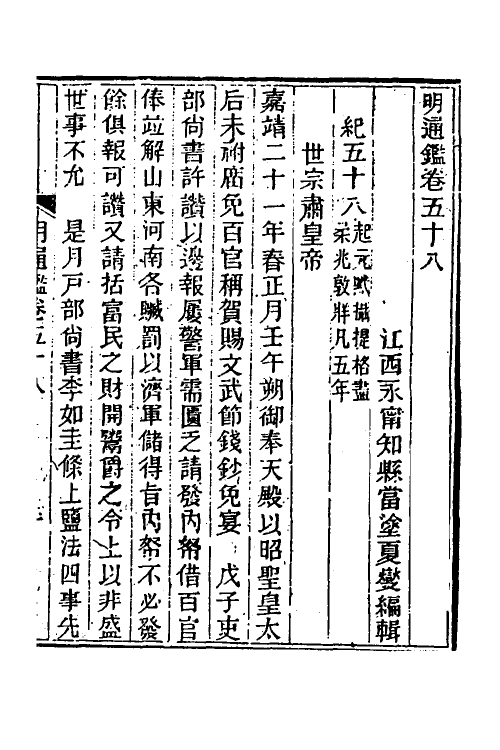 明通鑑卷五十八
江西永甯知縣當塗夏燮編輯
紀五十八起元黓攝提格盡
柔兆敦牂凡五年
世宗肅皇帝
嘉靖二十一年春正月壬午朔御奉天殿以昭聖皇太
后未祔廟免百官稱賀賜文武節錢鈔免宴 戊子吏
部尚書許讚以邊報屢警軍需匱乏請發內帑借百官
俸竝解山東河南各贓罰以濟軍儲得旨內帑不必發
餘俱報可讚又請括富民之財開鬻爵之令上以非盛
世事不允 是月戸部尚書李如圭條上鹽法四事先
明通鑑卷五十八